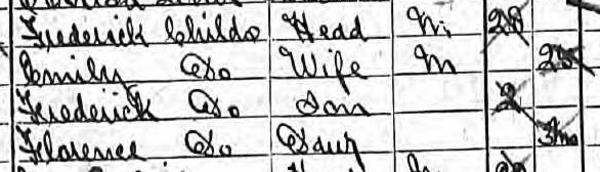 Frederick Childs Head M. 28
Emily Do Wife M
Frederick Do Son 2
Florence Do Daur 3mo